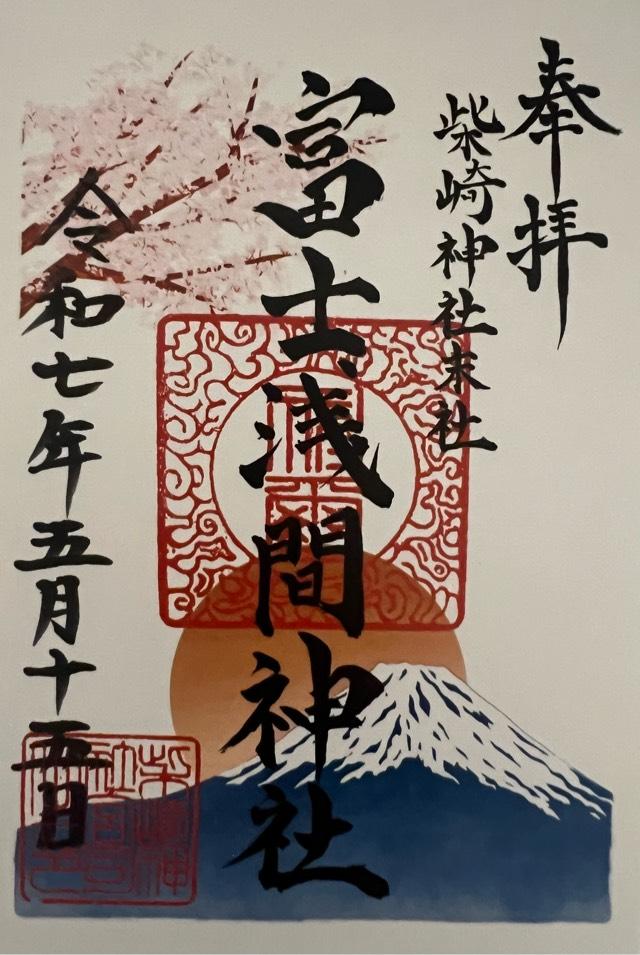 奉拝
柴崎神社末社
富士浅間神社
令和七年五月十五日